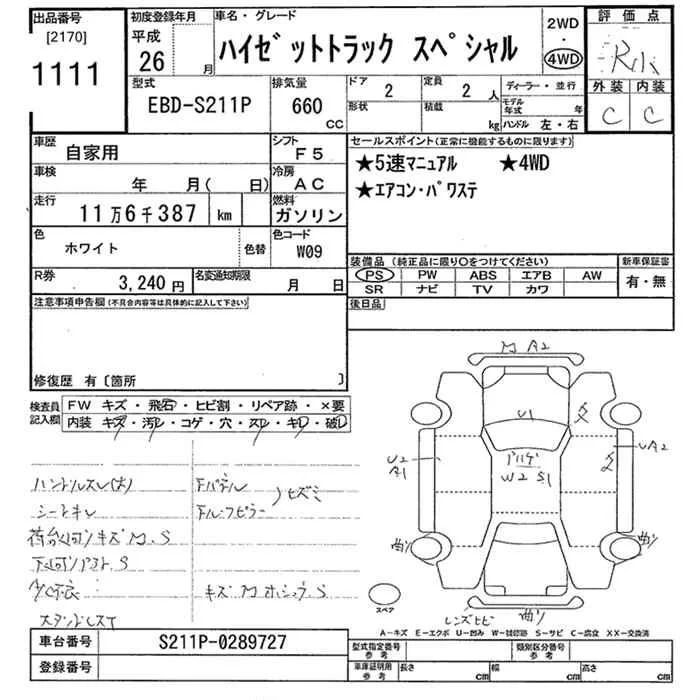 出品番号
[2170]
1111
初度登録年月
平成
26 月
車名・グレード
ハイゼットトラック スペシャル
2WD
・
4WD
評価点
R
外装 内装
C C
型式
EBD-S211P
排気量
660
CC
ドア
2
形状
定員
2 人
積載
kg
ディーラー・並行
モデル年式 年
ハンドル 左・右
車歴
自家用
シフト
F5
車検
年 月( 日)
冷房
AC
走行
11万6千387 km
燃料
ガソリン
色
ホワイト
色替
色コード
W09
R券
3,240円
名変通知期限
月 日
セールスポイント(正常に機能するものに限ります)
★5速マニュアル ★4WD
★エアコン・パワステ
装備品(純正品に限り○をつけてください)
PS PW ABS エアB AW
SR ナビ TV カワ
新車保証書
有・無
後日品
注意事項申告欄(不具合内容等は具体的に記入して下さい)
修復歴 有〔箇所 〕
検査員記入欄
FW キズ・飛石・ヒビ割・リペア跡・×要
内装 キズ・汚レ・コゲ・穴・スレ・キレ・破レ
ハンドルスレ(大)
シートキレ
キズ M.S
S
M A2
U1
U2
A1
W2 S1
UA2
曲り
曲り
レンズヒビ 曲り
スペア
A-キズ E-エクボ U-凹み W-補修跡 S-サビ C-腐食 XX-交換済
車台番号
S211P-0289727
登録番号
型式指定番号
参考
類別区分番号
参考
車庫証明用
参考
長さ cm
幅 cm
高さ cm